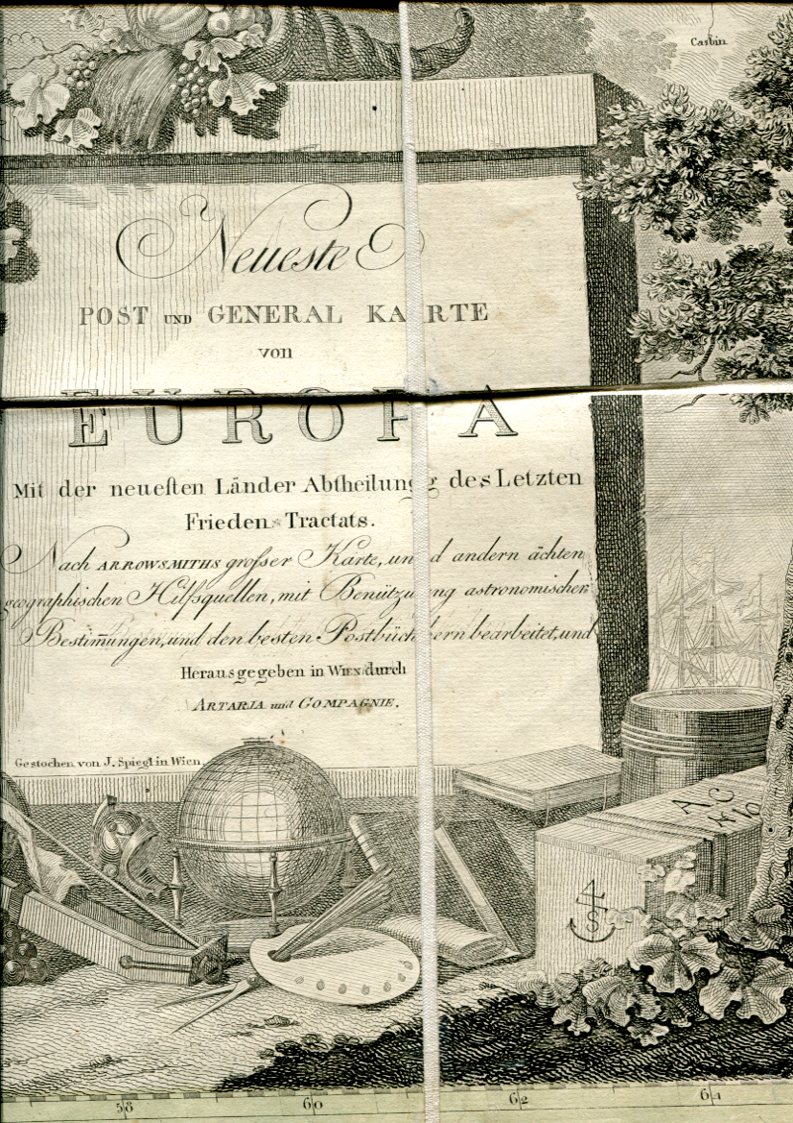 Casbin
Neueste
POST UND GENERAL KAARTE
von
EUROPA
Mit der neueſten Länder Abtheilung des Letzten
Frieden Tractats.
Nach ARROWSMITHS groſser Karte, und andern ächten
geographischen Hilfsquellen, mit Benützung astronomischer
Bestim̅ungen, und den besten Postbüchern bearbeitet, und
Herausgegeben in WIEN durch
ARTARIA und COMPAGNIE.
Gestochen von J. Spiegl in Wien.
A C
4
S
58 60 62 64